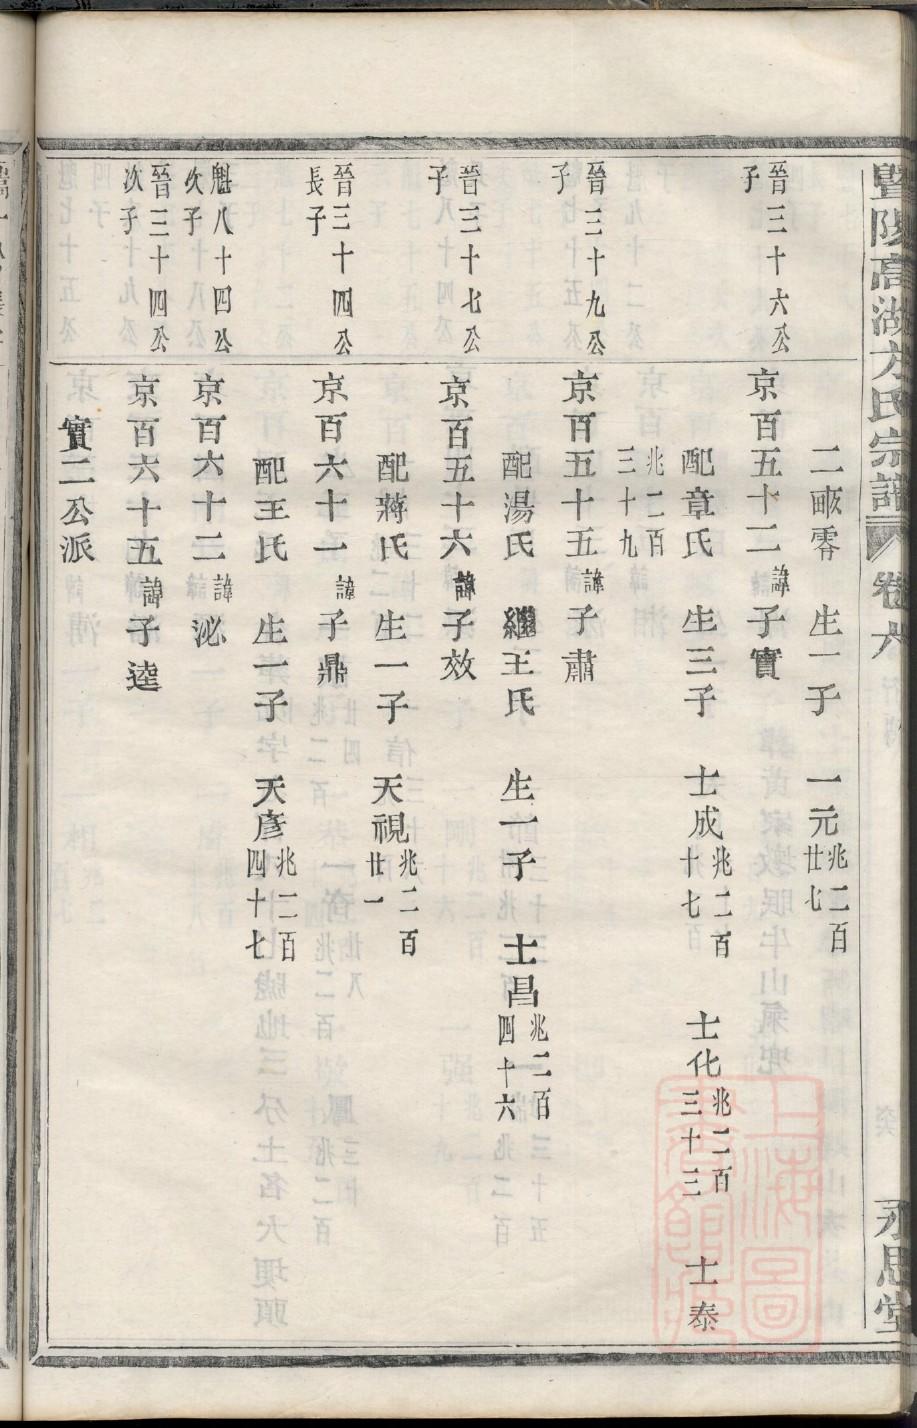 暨陽高湖方氏宗譜 卷六 永思堂
二畝零 生一子 一元兆二百廿七
晉三十六公子
京百五十二諱子實
配章氏 生三子 士成兆二百十七 士化兆二百三十三 士泰
兆二百三十九
晉三十九公子
京百五十五諱子肅
配湯氏 繼王氏 生一子 士昌兆二百四十六
晉三十七公子
京百五十六諱子效
配蔣氏 生一子 天視兆二百廿一
晉三十四公長子
京百六十一諱子鼎
配王氏 生一子 天彥兆二百四十七
魁八十四公次子
京百六十二諱泌
晉三十四公次子
京百六十五諱子逵
實二公派
上海圖書館藏